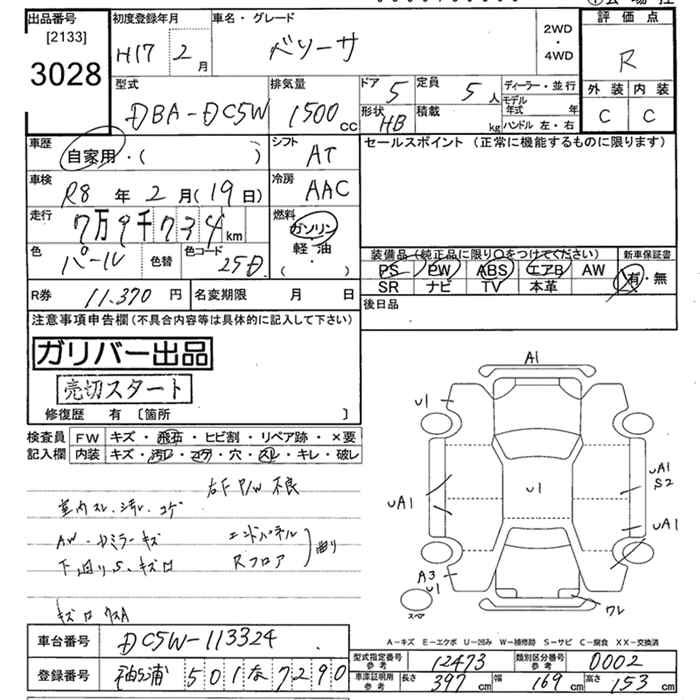 出品番号
[2133]
3028
初度登録年月
H17 2月
車名・グレード
ベリーサ
2WD
・
4WD
評価点
R
外装 内装
C C
型式
DBA-DC5W
排気量
1500cc
ドア 5
形状 HB
定員 5人
積載 kg
ディーラー・並行
モデル年式 年
ハンドル 左・右
車歴
自家用・( )
シフト
AT
セールスポイント (正常に機能するものに限ります)
車検
R8年2月(19日)
冷房
AAC
走行
7万9千734km
燃料
ガソリン
軽油
・( )
色
パール
色替
色コード
25D
装備品 (純正品に限り○をつけてください)
新車保証書
PS PW ABS エアB AW
有・無
SR ナビ TV 本革
R券 11,370円
名変期限 月 日
後日品
注意事項申告欄(不具合内容等は具体的に記入して下さい)
ガリバー出品
売切スタート
修復歴 有 [箇所 ]
検査員
記入欄
FW キズ・飛石・ヒビ割・リペア跡・×要
内装 キズ・汚レ・コゲ・穴・スレ・キレ・破レ
右F P/W 不良
室内スレ・汚レ・コゲ
AW・ドミラーキズ
エンドパネル
下回りS、キズ有
Rフロア
曲り
A1
U1
U1
UA1
UA1
S2
UA1
A3
U1
ワレ
スペア
A-キズ E-エクボ U-凹み W-補修跡 S-サビ C-腐食 XX-交換済
車台番号
DC5W-113324
登録番号
袖ヶ浦 501 な 7290
型式指定番号
参考
12473
類別区分番号
参考
0002
車庫証明用
参考
長さ 397cm 幅 169cm 高さ 153cm